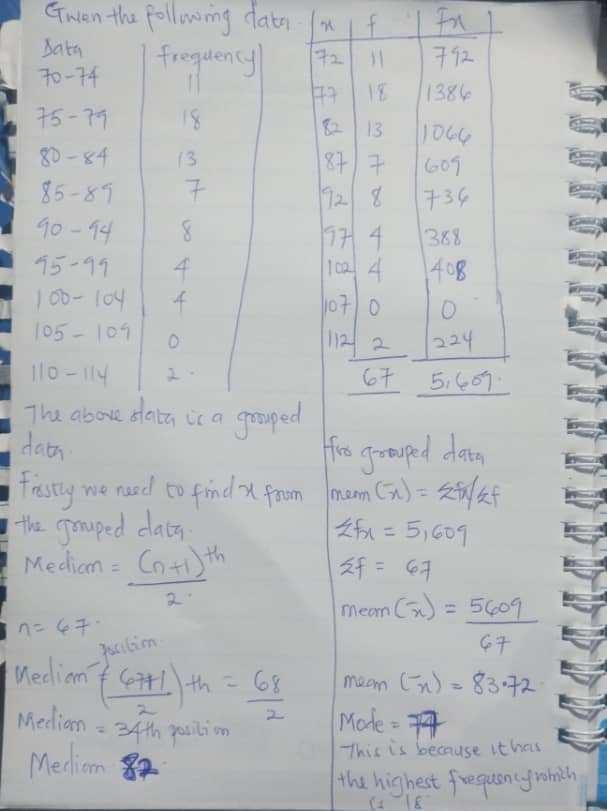 Given the following data.
Data frequency
70-74 11
75-79 18
80-84 13
85-89 7
90-94 8
95-99 4
100-104 4
105-109 0
110-114 2.
The above data is a grouped
data.
Firstly we need to find x from
the grouped data.
Median = (n+1)th
2.
n= 67.
position
Median = (67+1)th = 68
2 2
Median = 34th position
Median 82.
x f Fx
72 11 792
77 18 1386
82 13 1066
87 7 609
92 8 736
97 4 388
102 4 408
107 0 0
112 2 224
67 5,609.
for grouped data
mean (x̄) = Σfx/Σf
Σfx = 5,609
Σf = 67
mean (x̄) = 5609
67
mean (x̄) = 83.72.
Mode = 77
This is because it has
the highest frequency which
is 18